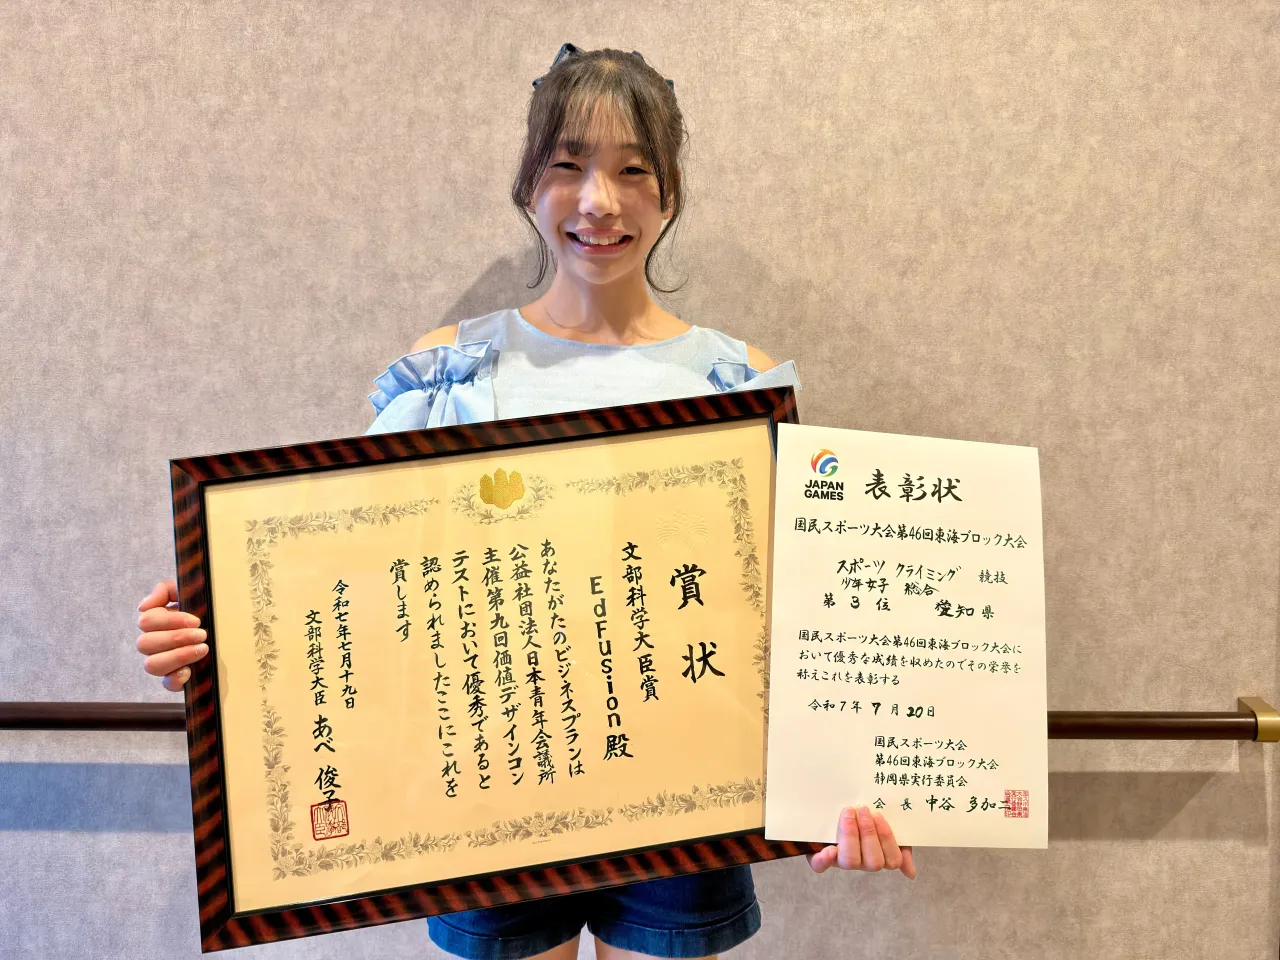 賞状
文部科学大臣賞
EdFusion殿
あなたがたのビジネスプランは
公益社団法人日本青年会議所
主催第九回価値デザインコン
テストにおいて優秀であると
認められましたここにこれを
賞します
令和七年七月十九日
文部科学大臣 あべ 俊子
JAPAN
GAMES
表彰状
国民スポーツ大会第46回東海ブロック大会
スポーツ クライミング 競技
少年女子 総合
第 3 位 愛知 県
国民スポーツ大会第46回東海ブロック大会に
おいて優秀な成績を収めたのでその栄誉を
称えこれを表彰する
令和7年 7月20日
国民スポーツ大会
第46回東海ブロック大会
静岡県実行委員会
会 長 中谷 多加二